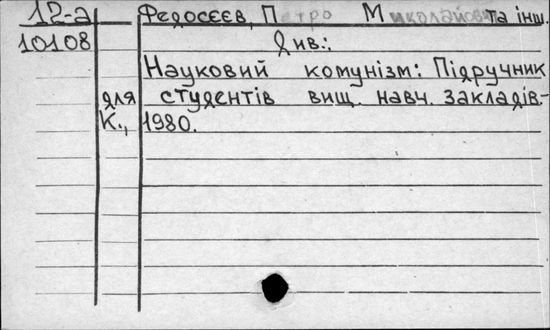 12-а Федосєєв, Петро Миколайович та інш.
10108 Див.:
Науковий комунізм: Підручник
для студентів вищ. навч. закладів.-
К., 1980.